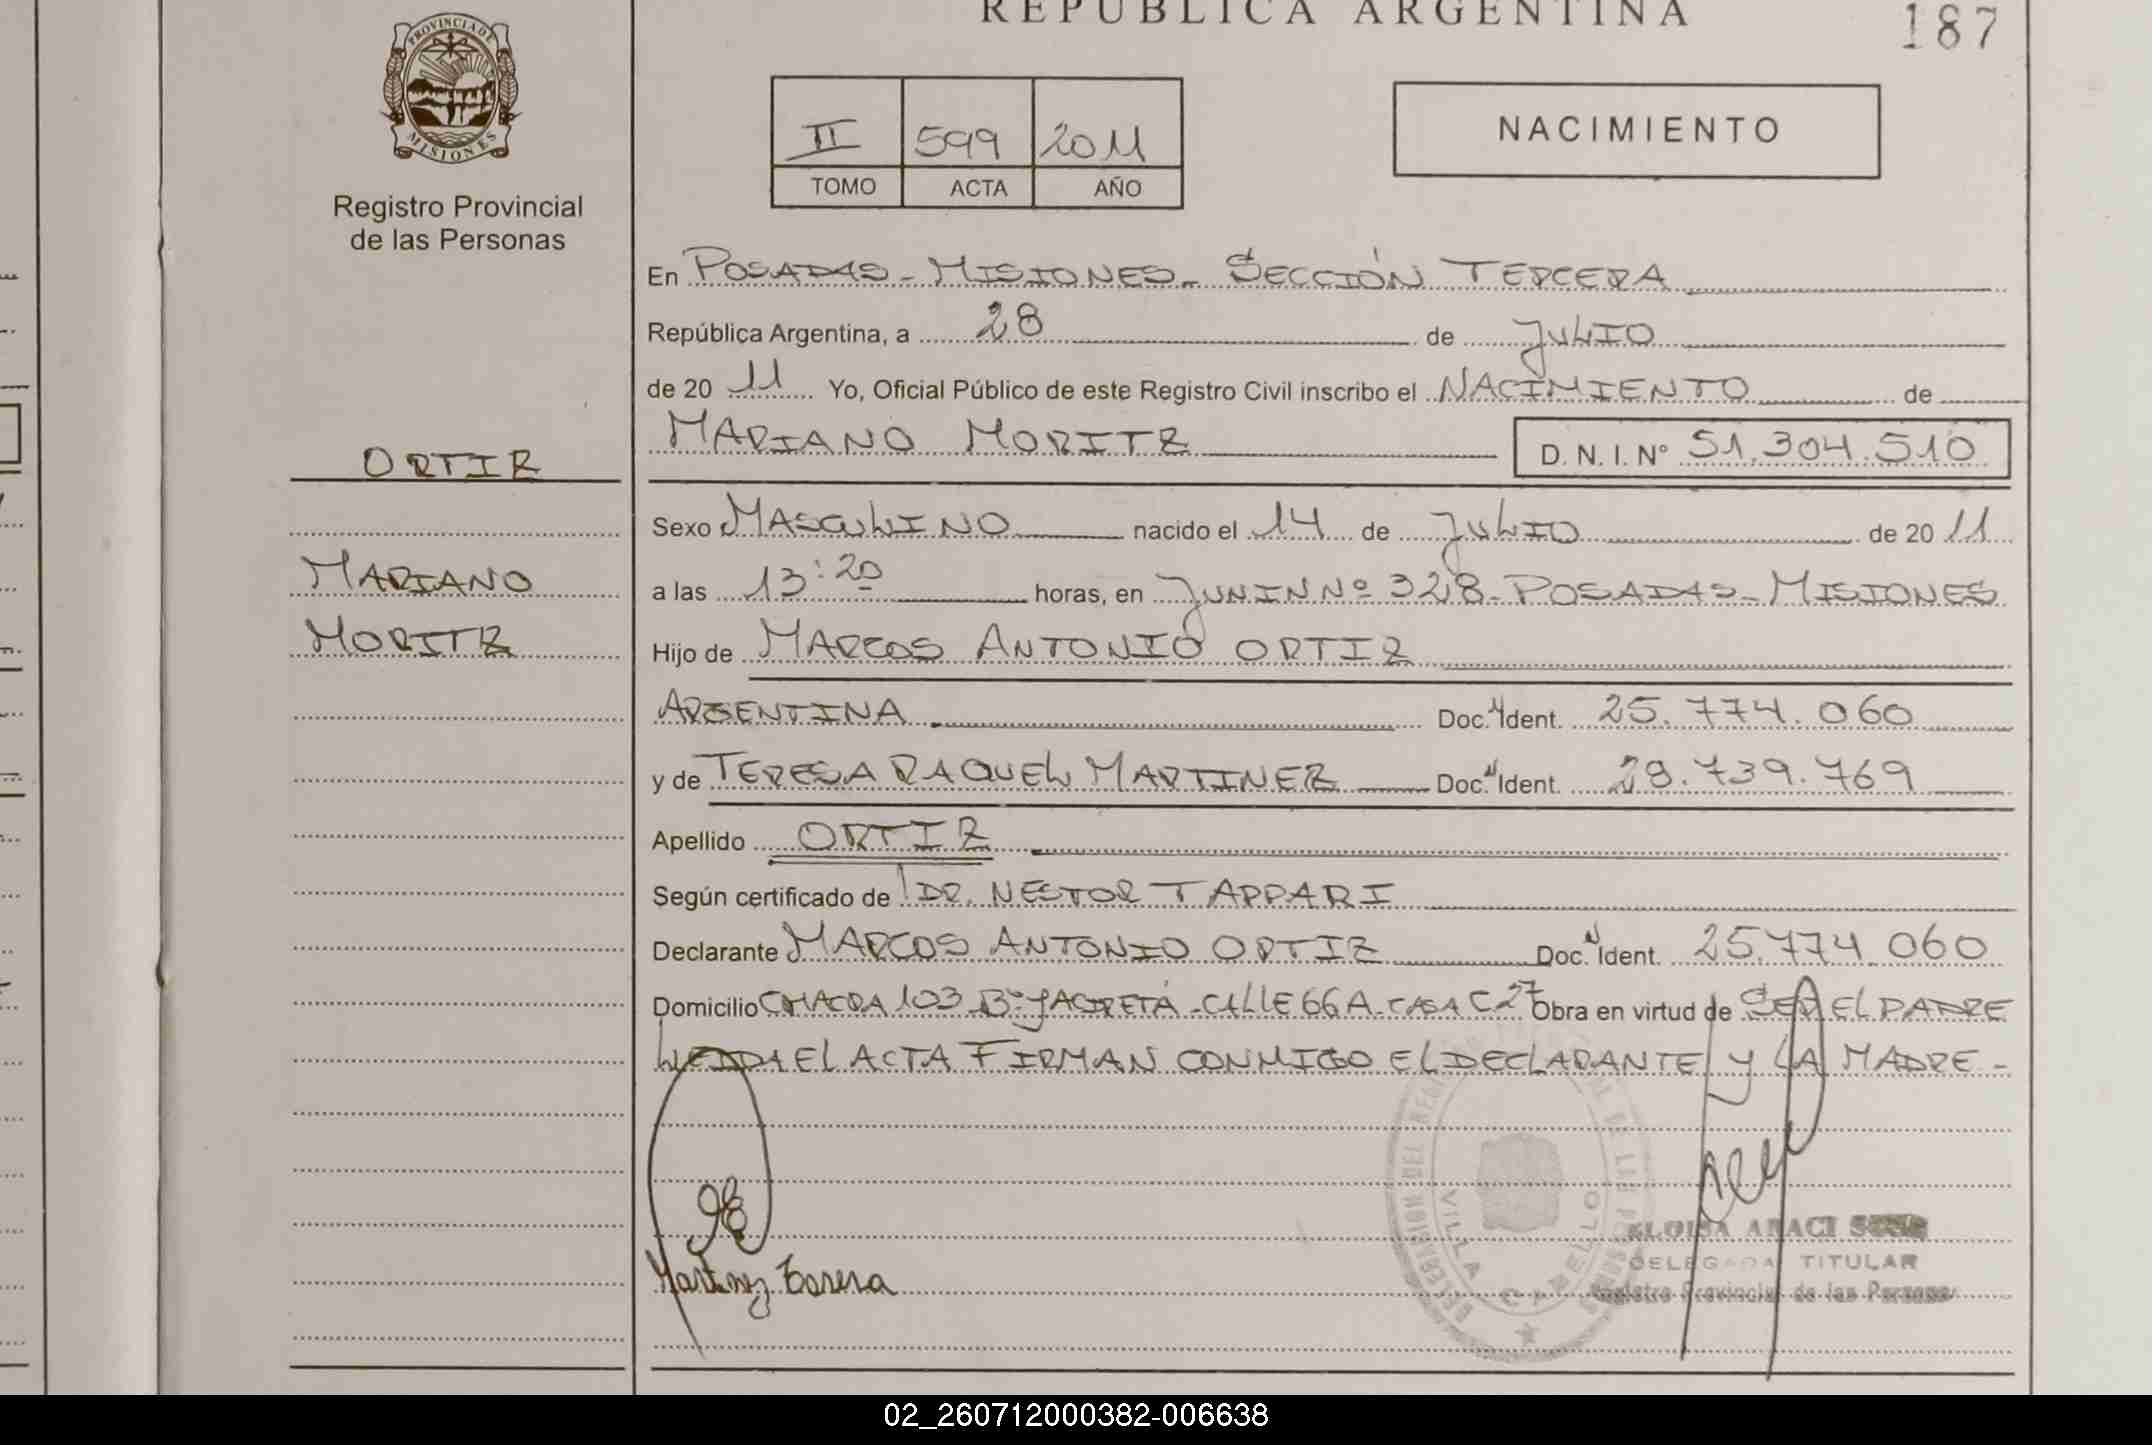 REPUBLICA ARGENTINA
187
PROVINCIA DE
MISIONES
Registro Provincial
de las Personas
II 599 2011
TOMO ACTA AÑO
NACIMIENTO
En POSADAS - MISIONES - SECCIÓN TERCERA
República Argentina, a 28 de JULIO
de 20 11 Yo, Oficial Público de este Registro Civil inscribo el NACIMIENTO de
MARIANO MORITZ D. N. I. Nº 51.304.510
ORTIZ
MARIANO
MORITZ
Sexo MASCULINO nacido el 14 de JULIO de 20 11
a las 13:20 horas, en JUNIN Nº 328 - POSADAS - MISIONES
Hijo de MARCOS ANTONIO ORTIZ
ARGENTINA Doc. Ident. 25.774.060
y de TERESA RAQUEL MARTINEZ Doc. Ident. 28.739.769
Apellido ORTIZ
Según certificado de DR. NESTOR TAPPARI
Declarante MARCOS ANTONIO ORTIZ Doc. Ident. 25.774.060
Domicilio CHACRA 103 Bº YACIRETÁ - CALLE 66 A - CASA C 27 Obra en virtud de SER EL PADRE
LEIDA EL ACTA FIRMAN CONMIGO EL DECLARANTE Y LA MADRE -
Martinez Teresa
VILLA CABELLO
ELOISA ARACI
DELEGADA TITULAR
Registro Provincial de las Personas
02_260712000382-006638